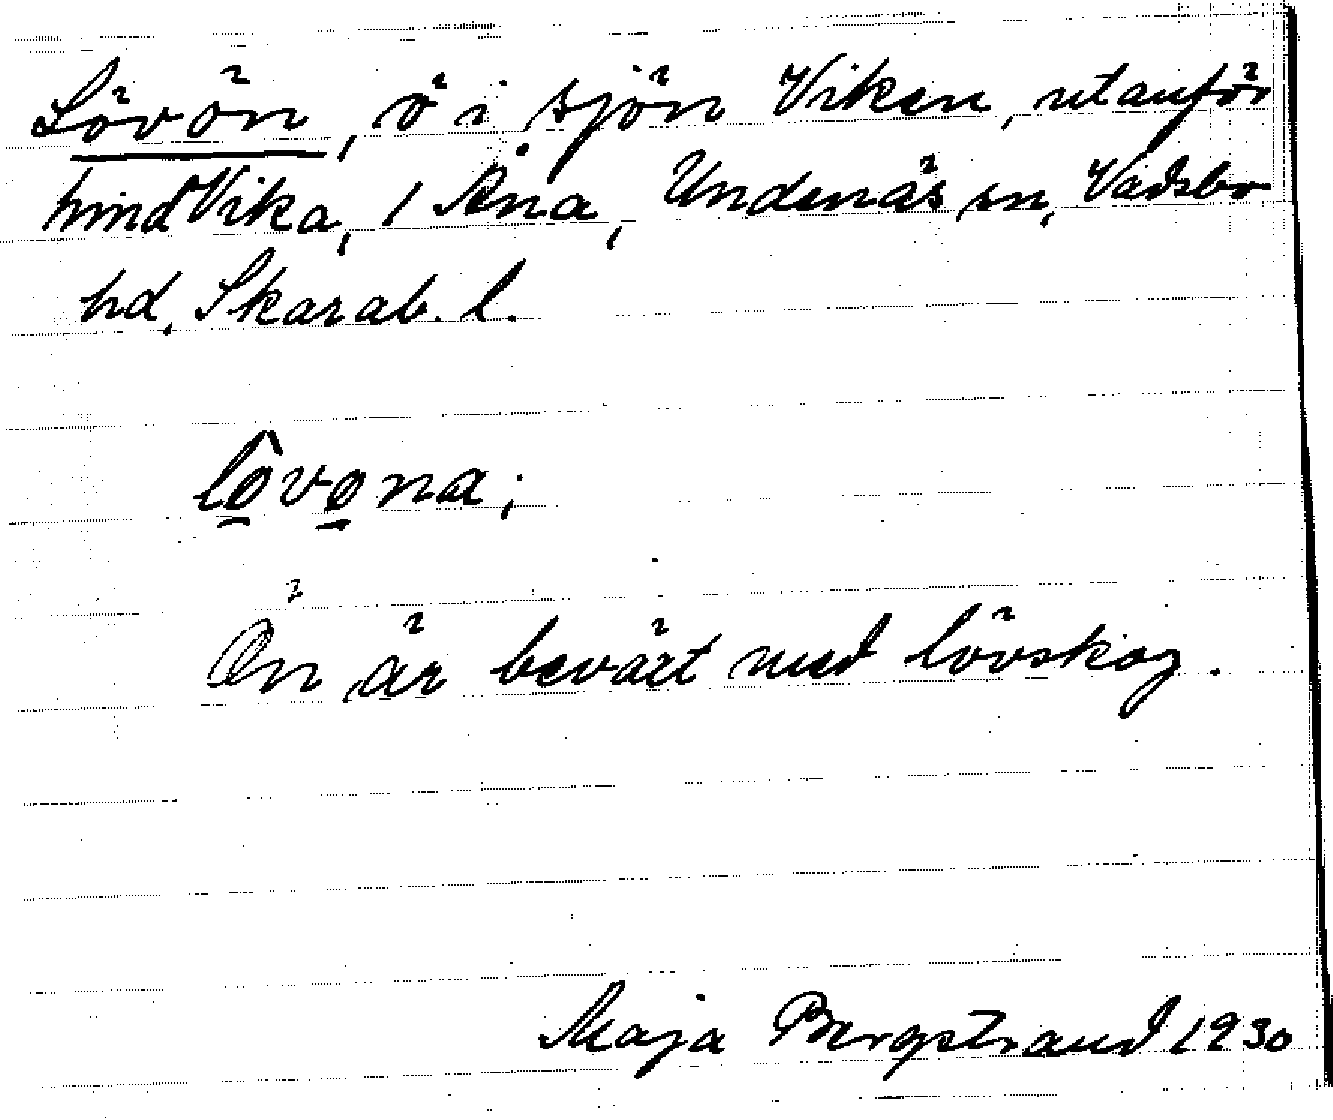 Lövön, ö i sjön Viken, utanför
hmd Vika, 1 Åna, Undenäs sn, Vadsbo
hd, Skarab. l.
lôvona;
Ön är bevärt med lövskog.
Maja Bergstrand 1930